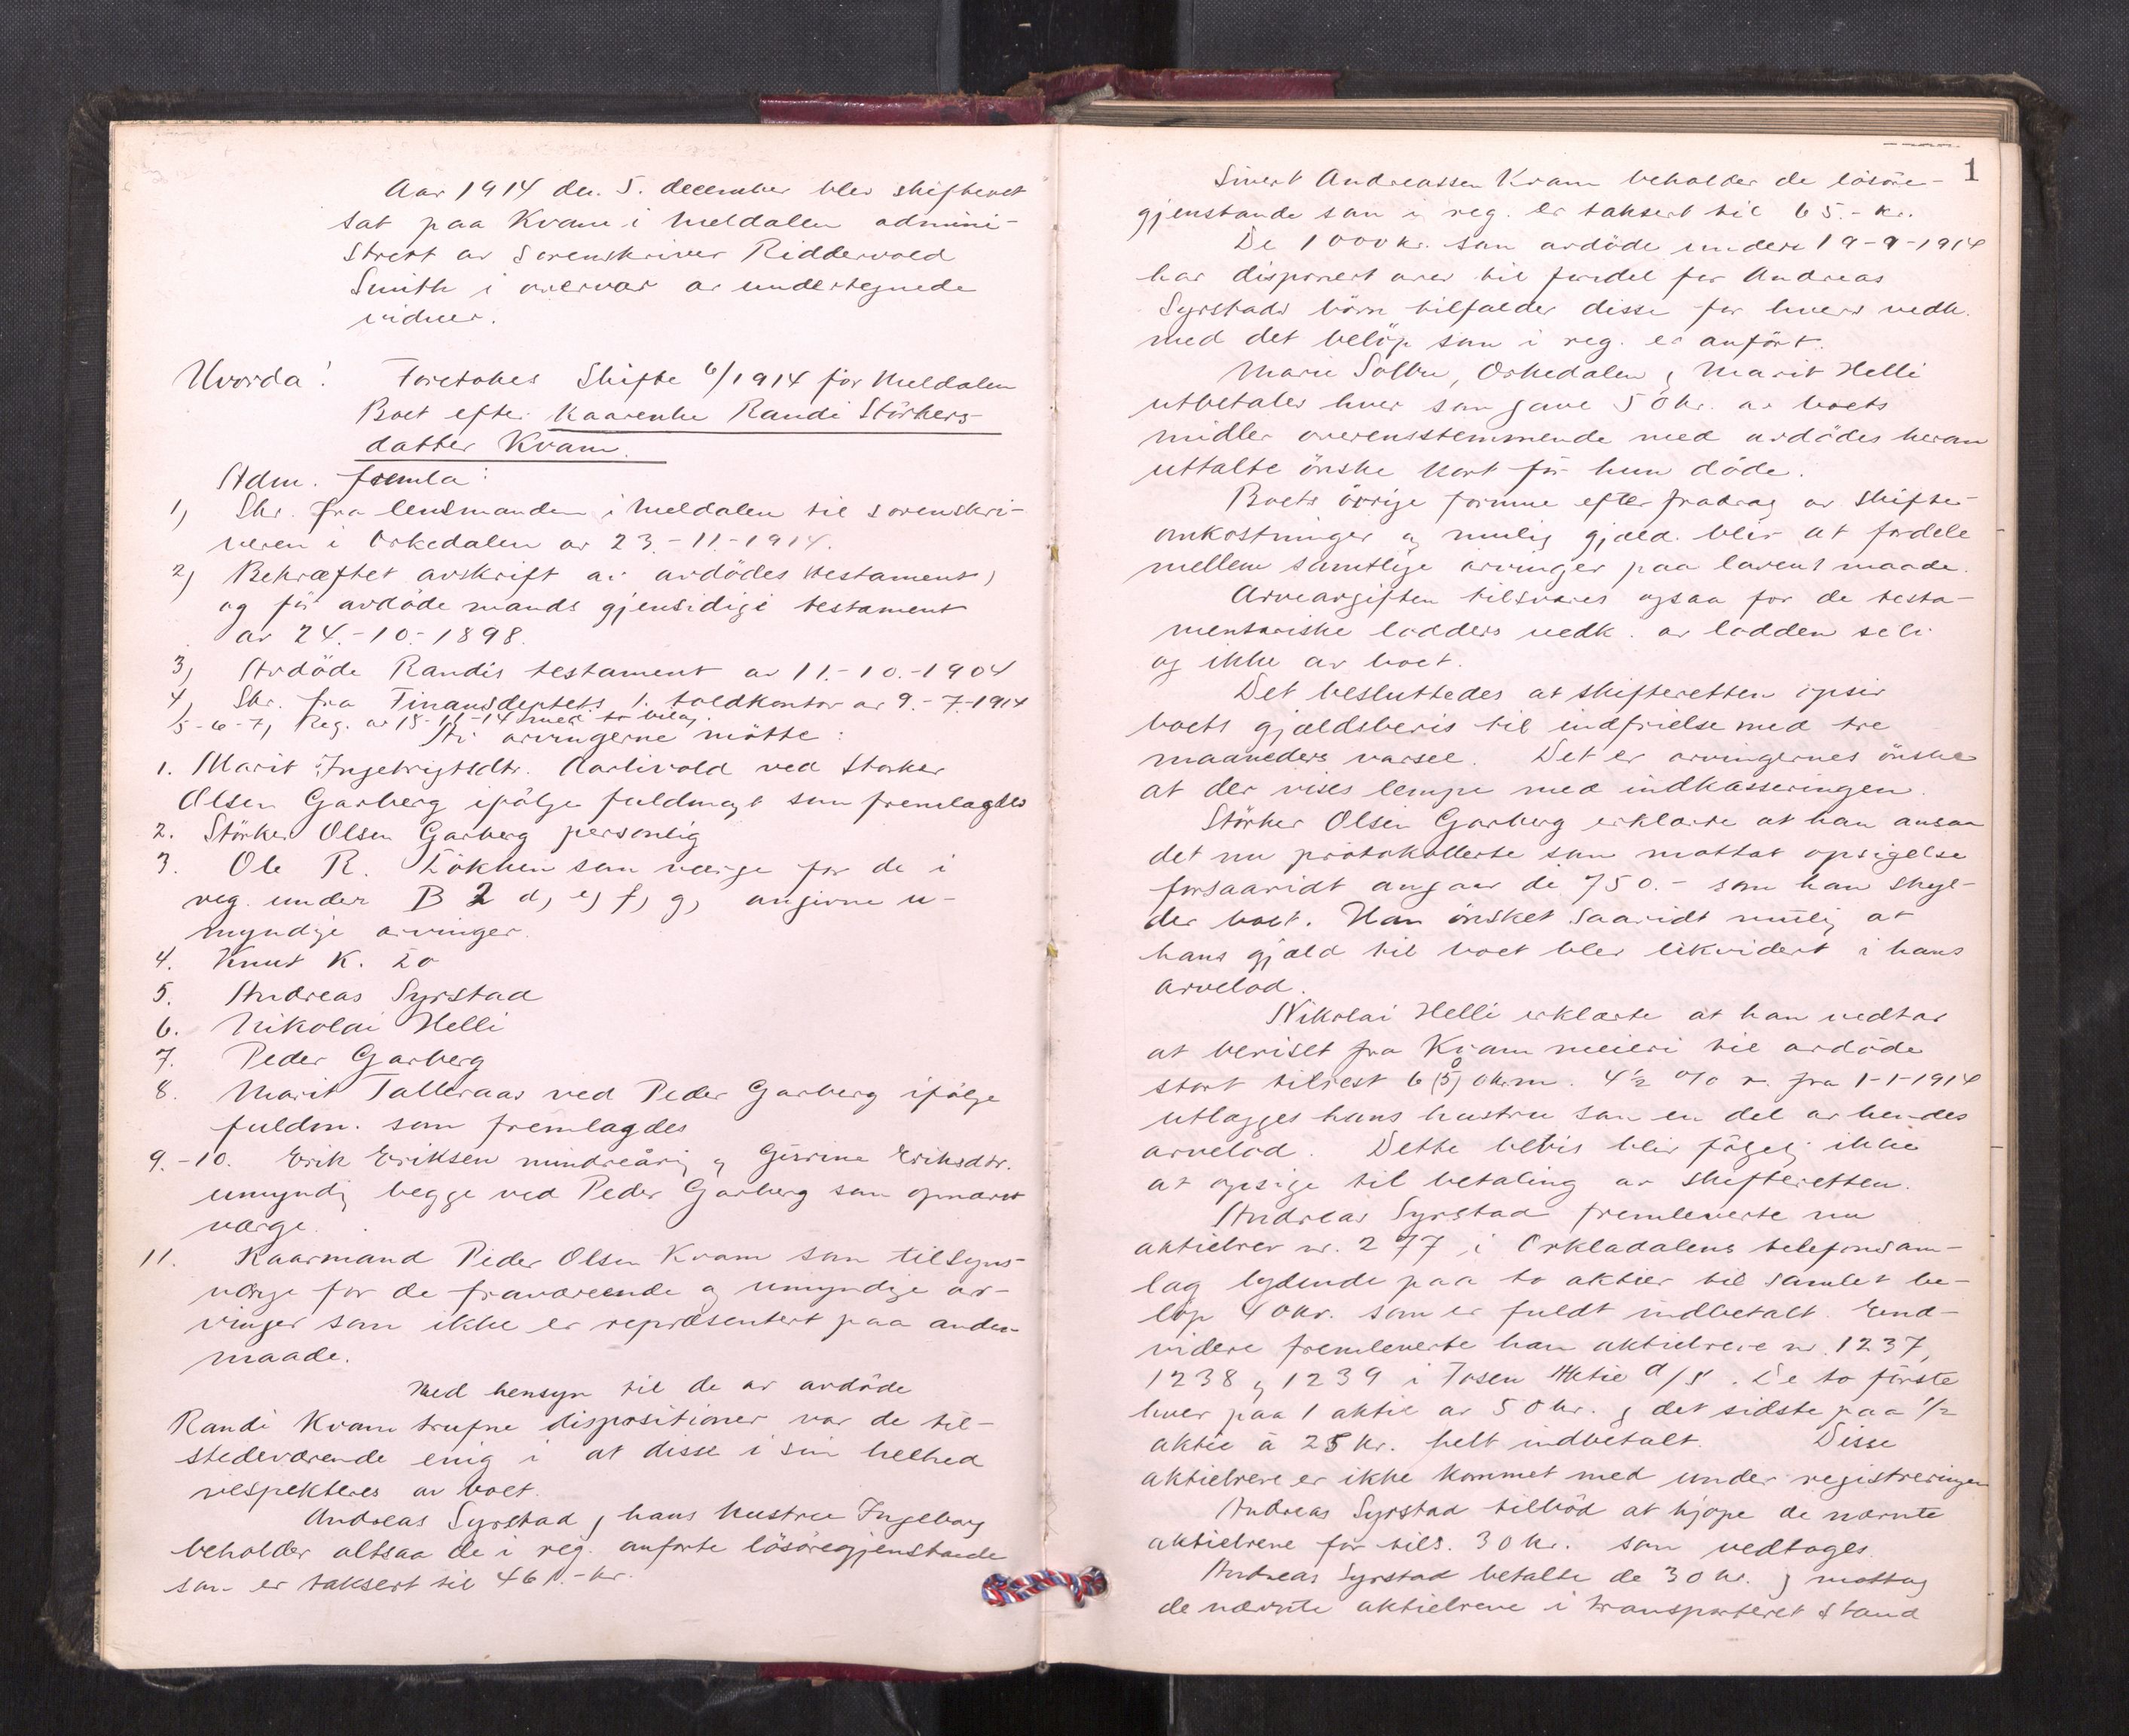 Aar 1914 den 5. december blev skifteret
sat paa Kvam i Meldalen admini-
strert av sorenskriver Riddervold
Smith i overvær av undertegnede
vidner.
Hvorda! Foretokes Skifte 6/1914 for Meldalen
Boet efter kaarenke Randi Störkers-
datter Kvam.
Adm. fremla:
1) Skr. fra lensmanden i Meldalen til sorenskri-
veren i Orkedalen av 23.-11.-1914.
2) Bekræftet avskrift av avdödes testament,
og før avdöde mands gjensidige testament
av 24.-10.-1898.
3) Avdöde Randis testament av 11.-10.-1904
4) Skr. fra Finansdeptets 1. toldkontor av 9.-7.-1914
5-6-7) Reg. av 18-11-14 med to bilag.
Av arvingerne mötte:
1. Marit Ingebrigtsdtr. Aarlivold ved Storker
Olsen Garberg ifölge fuldmagt som fremlagdes
2. Störker Olsen Garberg personlig
3. Ole R. Lökken som værge for de i
reg. under B 2 d, e, f, g, angivne u-
myndige arvinger.
4. Knut K. Lo
5. Andreas Syrstad
6. Nikolai Helli
7. Peder Garberg
8. Marit Talleraas ved Peder Garberg ifölge
fuldm. som fremlagdes
9.-10. Erik Eriksen mindreårig og Gurine Eriksdtr.
umyndig begge ved Peder Garberg som opnævnt
værge.
11. Kaarmand Peder Olsen Kvam som tilsyns-
værge for de fraværende og umyndige ar-
vinger som ikke er repræsentert paa anden
maade.
Med hensyn til de av avdöde
Randi Kvam trufne dispositioner var de til-
stedeværende enig i at disse i sin helhed
respekteres av boet.
Andreas Syrstad og hans hustru Ingeborg
beholder altsaa de i reg. anförte lösöregjenstande
som er taksert til 461.- kr.
1
Sivert Andreassen Kvam beholder de lösöre-
gjenstande som i reg. er taksert til 65.- kr.
De 1000 kr. som avdöde under 19-9-1914
har disponert over til fordel for Andreas
Syrstads börn tilfalder disse for hvers vedk.
med det belöp som i reg. er anfört.
Marie Solbu, Orkedalen og Marit Helli
utbetales hver som gave 50 kr. av boets
midler overensstemmende med avdödes herom
uttalte önske kort för hun döde.
Boets övrige formue efter fradrag av skifte-
omkostninger og mulig gjæld blir at fordele
mellem samtlige arvinger paa lovens maade.
Arveavgiften tilsvares ogsaa for de testa-
mentariske lodders vedk. av lodden selv
og ikke av boet.
Det besluttedes at skifteretten opsir
boets gjældsbevis til indfrielse med tre
maaneders varsel. Det er arvingernes önske
at der vises lempe med indkasseringen.
Störker Olsen Garberg erklærte at han ansaa
det nu protokollerte som mottat opsigelse
forsaavidt angaar de 750.- som han skyl-
der boet. Han önsket saavidt mulig at
hans gjæld til boet blev likvidert i hans
arvelod.
Nikolai Helli erklærte at han vedtar
at beviset fra Kvam meieri til avdöde
stort tilrest 650 kr m. 4½ % r. fra 1-1-1914
utlægges hans hustru som en del av hendes
arvelod. Dette bevis blir fölgelig ikke
at opsige til betaling av skifteretten.
Andreas Syrstad fremleverte nu
aktiebrev nr. 277 i Orkladalens telefonsam-
lag lydende paa to aktier til samlet be-
löp 40 kr. som er fuldt indbetalt. End-
videre fremleverte han aktiebreve nr. 1237,
1238 og 1239 i Fosen Aktie a/s. De to förste
hver paa 1 aktie av 50 kr. og det sidste paa 1/2
aktie à 25 kr. helt indbetalt. Disse
aktiebreve er ikke kommet med under registreringen
Andreas Syrstad tilböd at kjöpe de nævnte
aktiebreve for tils. 30 kr. som vedtoges.
Andreas Syrstad betalte de 30 kr. og mottog
de nævnte aktiebreve i transporteret stand